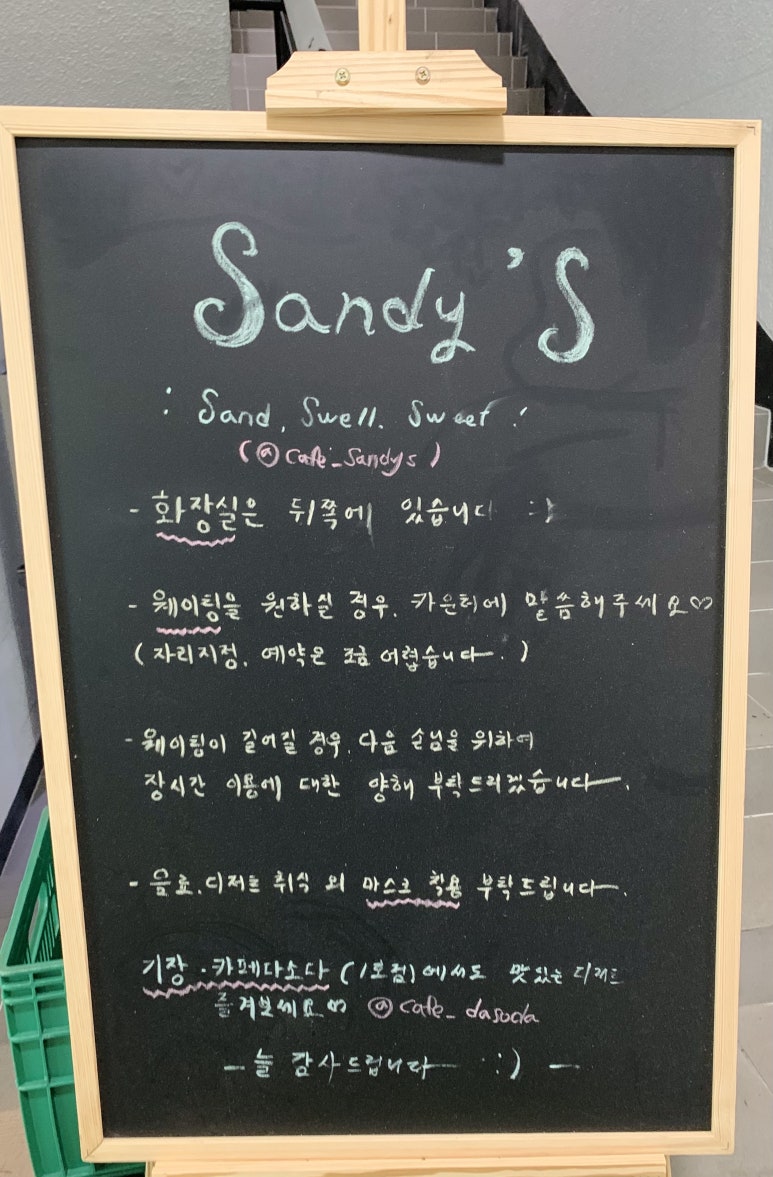 Sandy'S
: Sand, Swell. Sweet !
(@cafe_sandys)
- 화장실은 뒤쪽에 있습니다 :)
- 웨이팅을 원하실 경우, 카운터에 말씀해주세요♡
(자리지정, 예약은 조금 어렵습니다.)
- 웨이팅이 길어질 경우, 다음 손님을 위하여
장시간 이용에 대한 양해 부탁드리겠습니다.
- 음료, 디저트 취식 외 마스크 착용 부탁드립니다.
기장 · 카페다소다 (1호점)에서도 맛있는 디저트
즐겨보세요♡ @cafe_dasoda
- 늘 감사드립니다 :) -